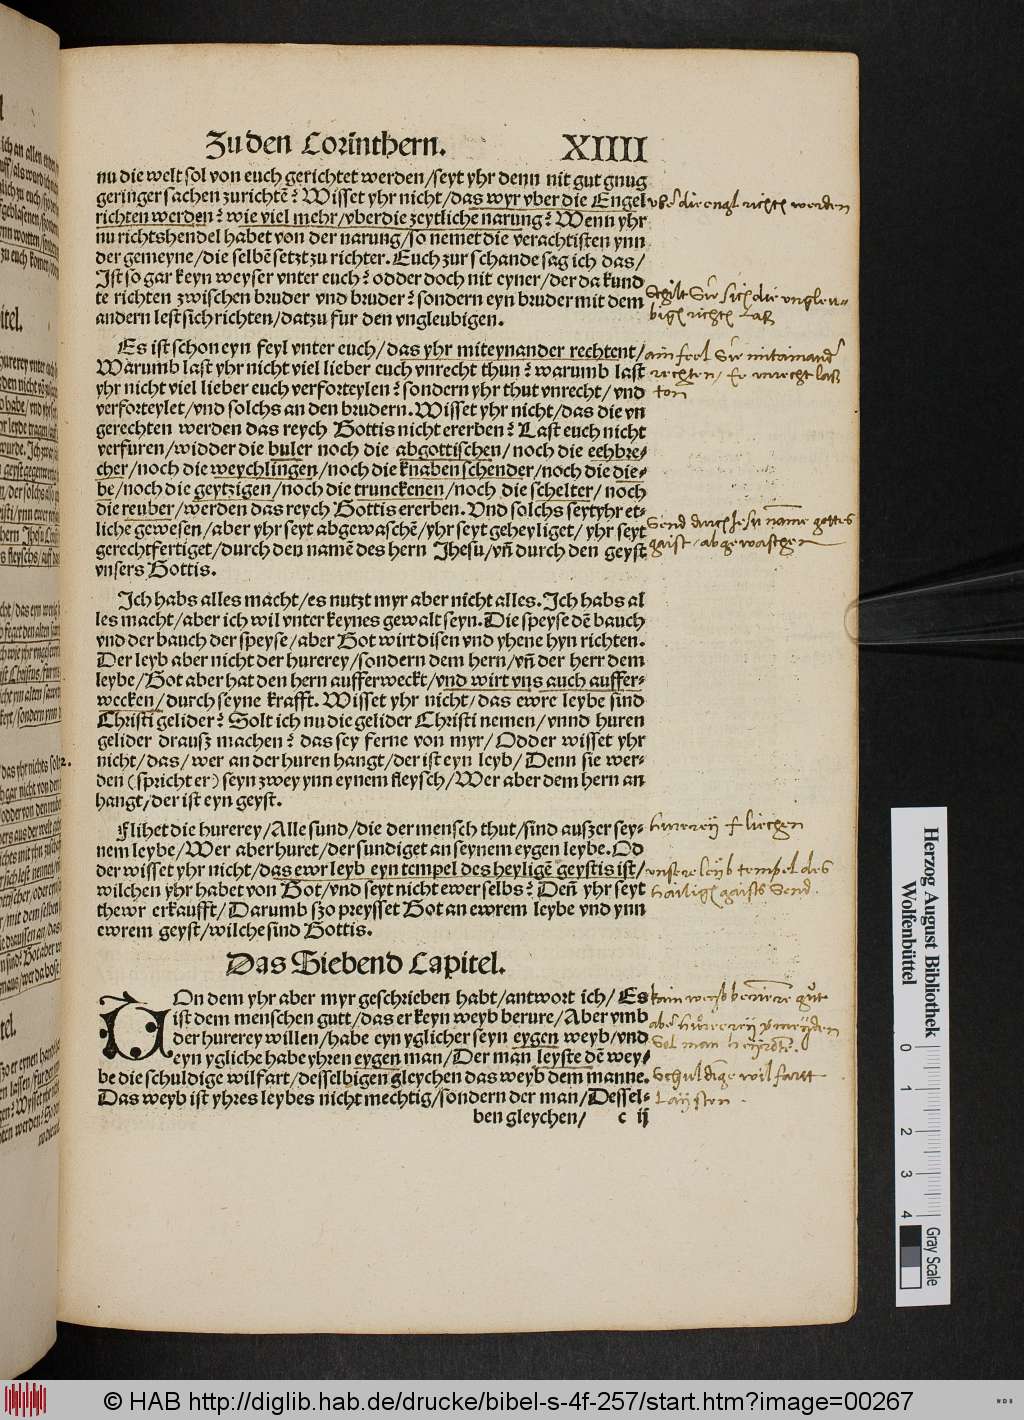 Zu den Corinthern. XIIII
nu die welt sol von euch gerichtet werden/seyt yhr denn nit gut gnug
geringer sachen zurichtē? Wisset yhr nicht/das wyr vber die Engel
richten werden? wie viel mehr/vber die zeytliche narung? Wenn yhr
nu richtshendel habet von der narung/so nemet die verachtisten ynn
der gemeyne/die selbē setzt zu richter. Euch zur schande sag ich das/
Ist so gar keyn weyser vnter euch? odder doch nit eyner/der da kund
te richten zwischen bruder vnd bruder? sondern eyn bruder mit dem
andern lest sich richten/datzu fur den vngleubigen.
Es ist schon eyn feyl vnter euch/das yhr miteynander rechtent/
Warumb last yhr nicht viel lieber euch vnrecht thun? warumb last
yhr nicht viel lieber euch verforteylen? sondern yhr thut vnrecht/vnd
verforteylet/vnd solchs an den brudern. Wisset yhr nicht/das die vn
gerechten werden das reych Gottis nicht ererben? Last euch nicht
verfuren/widder die buler noch die abgottischen/noch die eehbre-
cher/noch die weychlingen/noch die knabenschender/noch die die-
be/noch die geytzigen/noch die trunckenen/noch die schelter/noch
die reuber/werden das reych Gottis ererben. Vnd solchs seyt yhr et-
liche gewesen/aber yhr seyt abgewaschē/yhr seyt geheyliget/yhr seyt
gerechtfertiget/durch den namē des hern Jhesu/vn̄ durch den geyst
vnsers Gottis.
Ich habs alles macht/es nutzt myr aber nicht alles. Ich habs al
les macht/aber ich wil vnter keynes gewalt seyn. Die speyse dē bauch
vnd der bauch der speyse/aber Got wirt disen vnd yhene hyn richten.
Der leyb aber nicht der hurerey/sondern dem hern/vn̄ der herr dem
leybe/Got aber hat den hern aufferweckt/vnd wirt vns auch auffer-
wecken/durch seyne krafft. Wisset yhr nicht/das ewre leybe sind
Christi gelider? Solt ich nu die gelider Christi nemen/vnnd huren
gelider drausz machen? das sey ferne von myr/Odder wisset yhr
nicht/das/wer an der huren hangt/der ist eyn leyb/Denn sie wer-
den (spricht er) seyn zwey ynn eynem fleysch/Wer aber dem hern an
hangt/der ist eyn geyst.
Flihet die hurerey/Alle sund/die der mensch thut/sind auszer sey-
nem leybe/Wer aber huret/der sundiget an seynem eygen leybe. Od
der wisset yhr nicht/das ewr leyb eyn tempel des heyligē geystis ist/
wilchen yhr habet von Got/vnd seyt nicht ewer selbs? Den̄ yhr seyt
thewr erkaufft/Darumb szo preysset Got an ewrem leybe vnd ynn
ewrem geyst/wilche sind Gottis.
Das Siebend Capitel.
VOn dem yhr aber myr geschrieben habt/antwort ich/Es
ist dem menschen gutt/das er keyn weyb berure/Aber vmb
der hurerey willen/habe eyn yglicher seyn eygen weyb/vnd
eyn ygliche habe yhren eygen man/Der man leyste dē wey-
be die schuldige wilfart/desselbigen gleychen das weyb dem manne.
Das weyb ist yhres leybes nicht mechtig/sondern der man/Dessel-
ben gleychen/ c ij
vber die engl richtn werden
Schilt Sie sich die vngleu-
bigen richtn lass
ain feel Sie mitainander
rechten / Ee vnrecht lass
ton
Send durch Jesu name gottes
gaist abgewaschen
hurerey fliechen
vnsere leyb tempel des
hailigen gaists Send.
kain weib berüere gůt
aber hurerey zmeyden
Sol man heyrotn.
Schuldige wilfart
Laysten.
Herzog August Bibliothek
Wolfenbüttel
0 1 2 3 4
Gray Scale
© HAB http://diglib.hab.de/drucke/bibel-s-4f-257/start.htm?image=00267